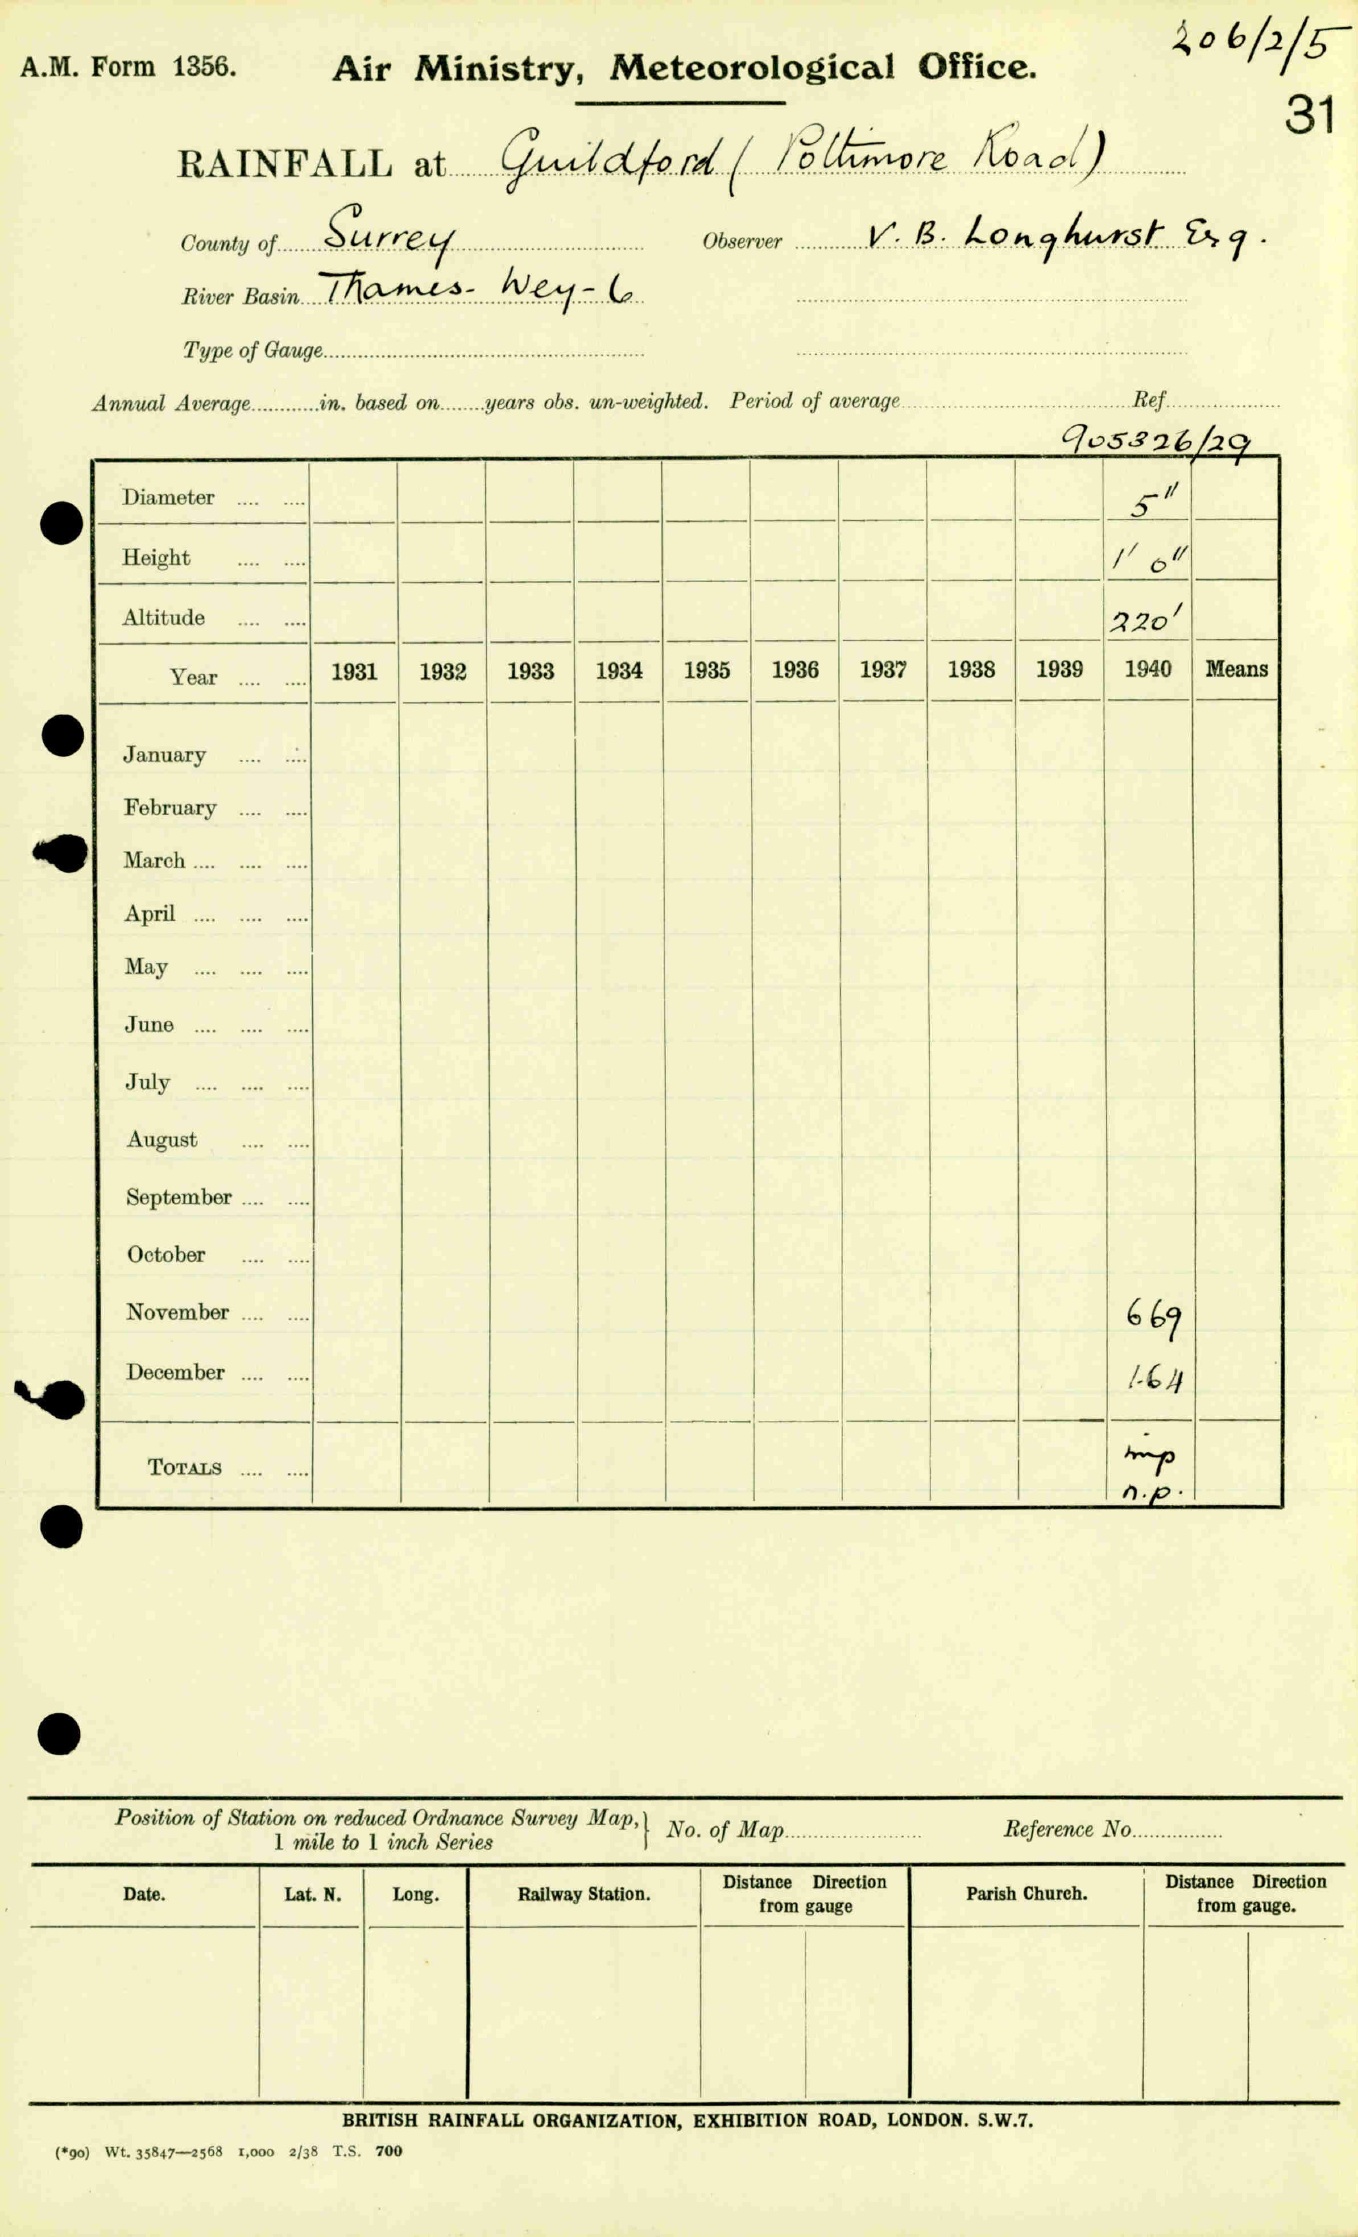 206/2/5
A.M. Form 1356. Air Ministry, Meteorological Office.
31
RAINFALL at Guildford (Poltimore Road)
County of Surrey Observer V. B. Longhurst Esq.
River Basin Thames - Wey - 6
Type of Gauge
Annual Average in. based on years obs. un-weighted. Period of average Ref.
905326/29
Diameter 5"
Height 1' 0"
Altitude 220'
Year 1931 1932 1933 1934 1935 1936 1937 1938 1939 1940 Means
January
February
March
April
May
June
July
August
September
October
November 669
December 1.64
TOTALS imp
n.p.
Position of Station on reduced Ordnance Survey Map, } No. of Map Reference No.
1 mile to 1 inch Series
Date. Lat. N. Long. Railway Station. Distance Direction from gauge Parish Church. Distance Direction from gauge.
BRITISH RAINFALL ORGANIZATION, EXHIBITION ROAD, LONDON. S.W.7.
(*90) Wt. 35847—2568 1,000 2/38 T.S. 700